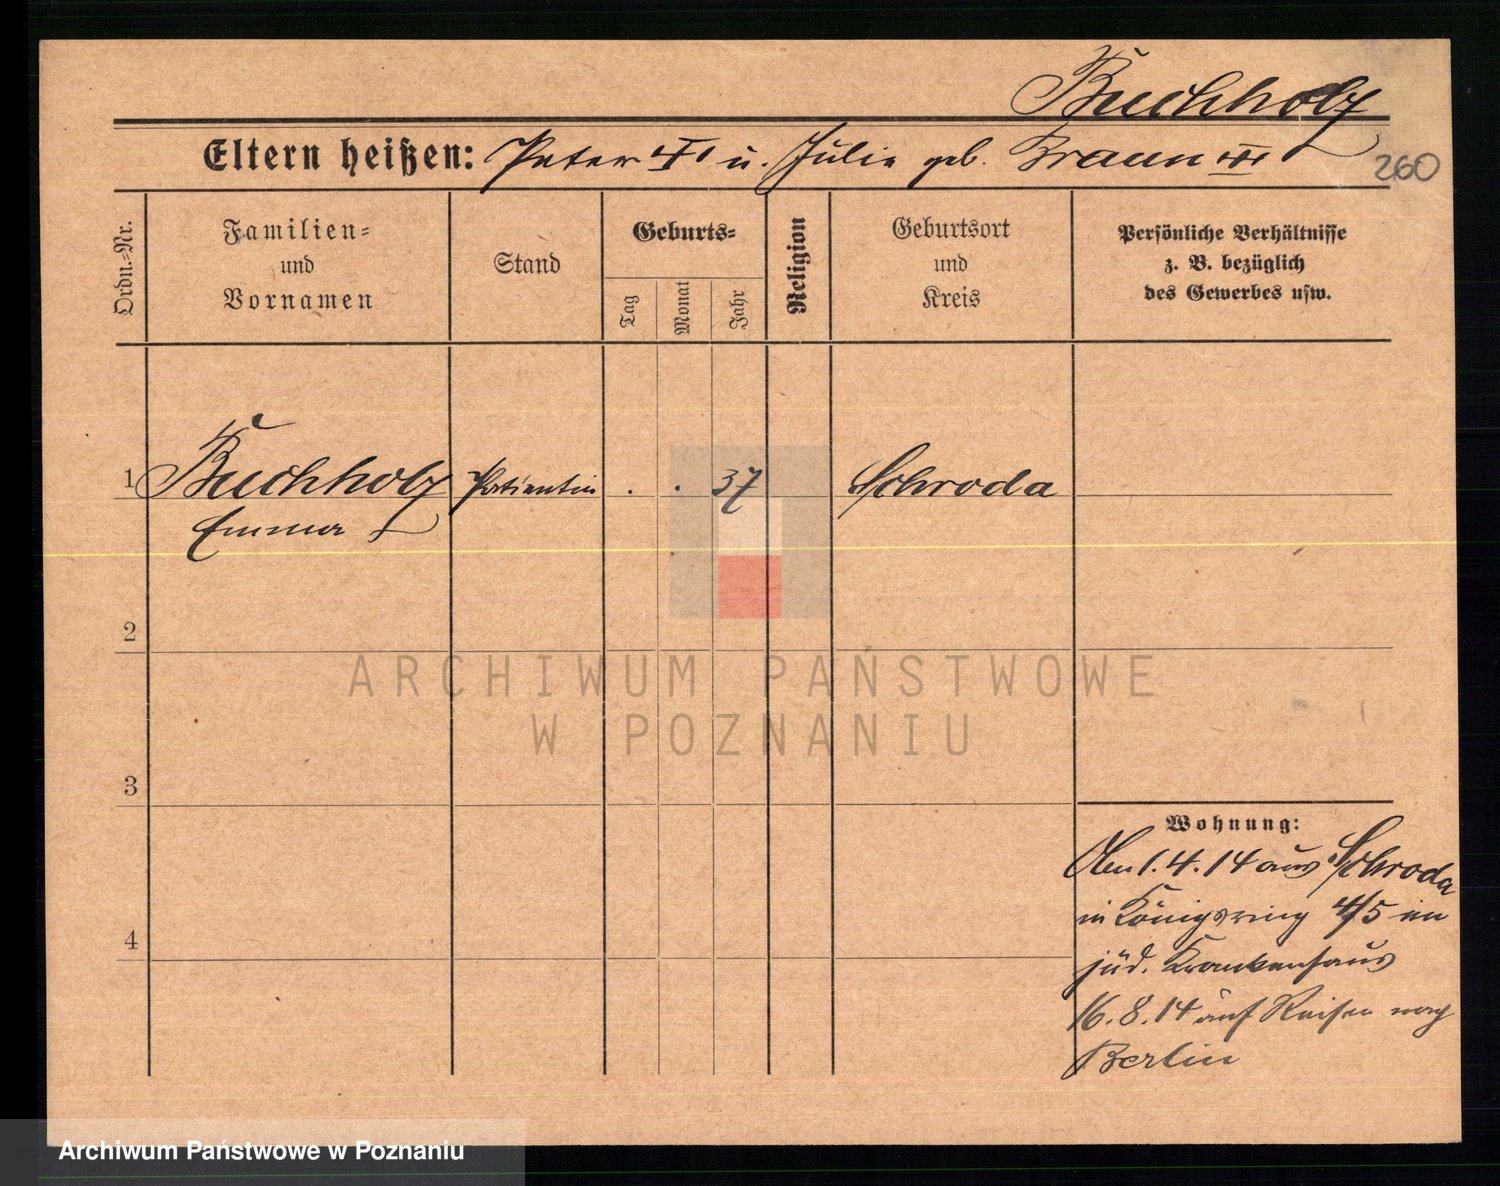 Buchholz
Eltern heißen: Peter u. Julie geb. Braun
260
Ordn.-Nr.
Familien-
und
Vornamen
Stand
Geburts-
Tag
Monat
Jahr
Religion
Geburtsort
und
Kreis
Persönliche Verhältnisse
z. B. bezüglich
des Gewerbes usw.
1 Buchholz Patientin . . 37 Schroda
Emma
2
3
4
Wohnung:
Den 1.4.14 aus Schroda
in Königsring 4/5 im
jüd. Krankenhaus
16.8.14 auf Reisen nach
Berlin
ARCHIWUM PAŃSTWOWE
W POZNANIU
Archiwum Państwowe w Poznaniu